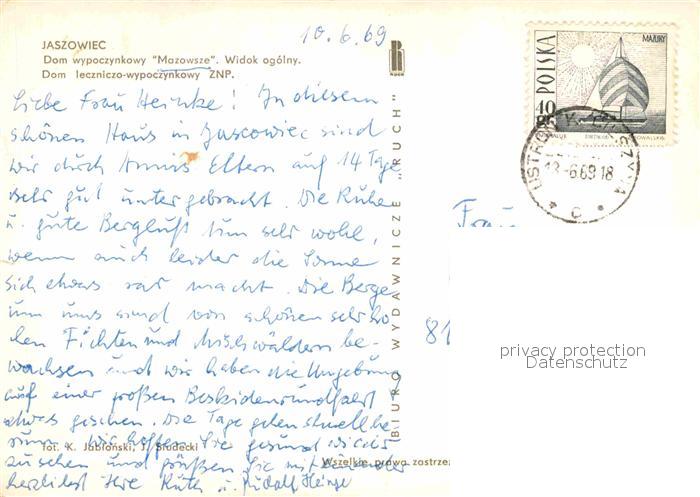 10.6.69
JASZOWIEC
Dom wypoczynkowy "Mazowsze". Widok ogólny.
Dom leczniczo-wypoczynkowy ZNP.
RUCH
POLSKA
MAZURY
40
13.-6.69.18
Liebe Frau Heinke! In diesem
schönen Haus in Jascowiec sind
wir durch Annis Eltern auf 14 Tage
sehr gut untergebracht. Die Ruhe
u. gute Bergluft tun sehr wohl,
wenn auch leider die Sonne
sich etwas rar macht. Die Berge
um uns sind von schönen sehr ho-
hen Fichten und Mischwäldern be-
wachsen und wir haben die Umgebung
auf einer großen Beskidenrundfahrt
etwas gesehen. Die Tage gehen schnell he-
rum. Wir hoffen Sie gesund wieder
zu sehen und grüßen Sie mit
herzlichst Ihre Ruth u. Rudolf Heinze
fot. K. Jabłoński, J. Siudecki
Wszelkie prawa zastrzeż
BIURO WYDAWNICZE „RUCH"
Frau
81
privacy protection
Datenschutz